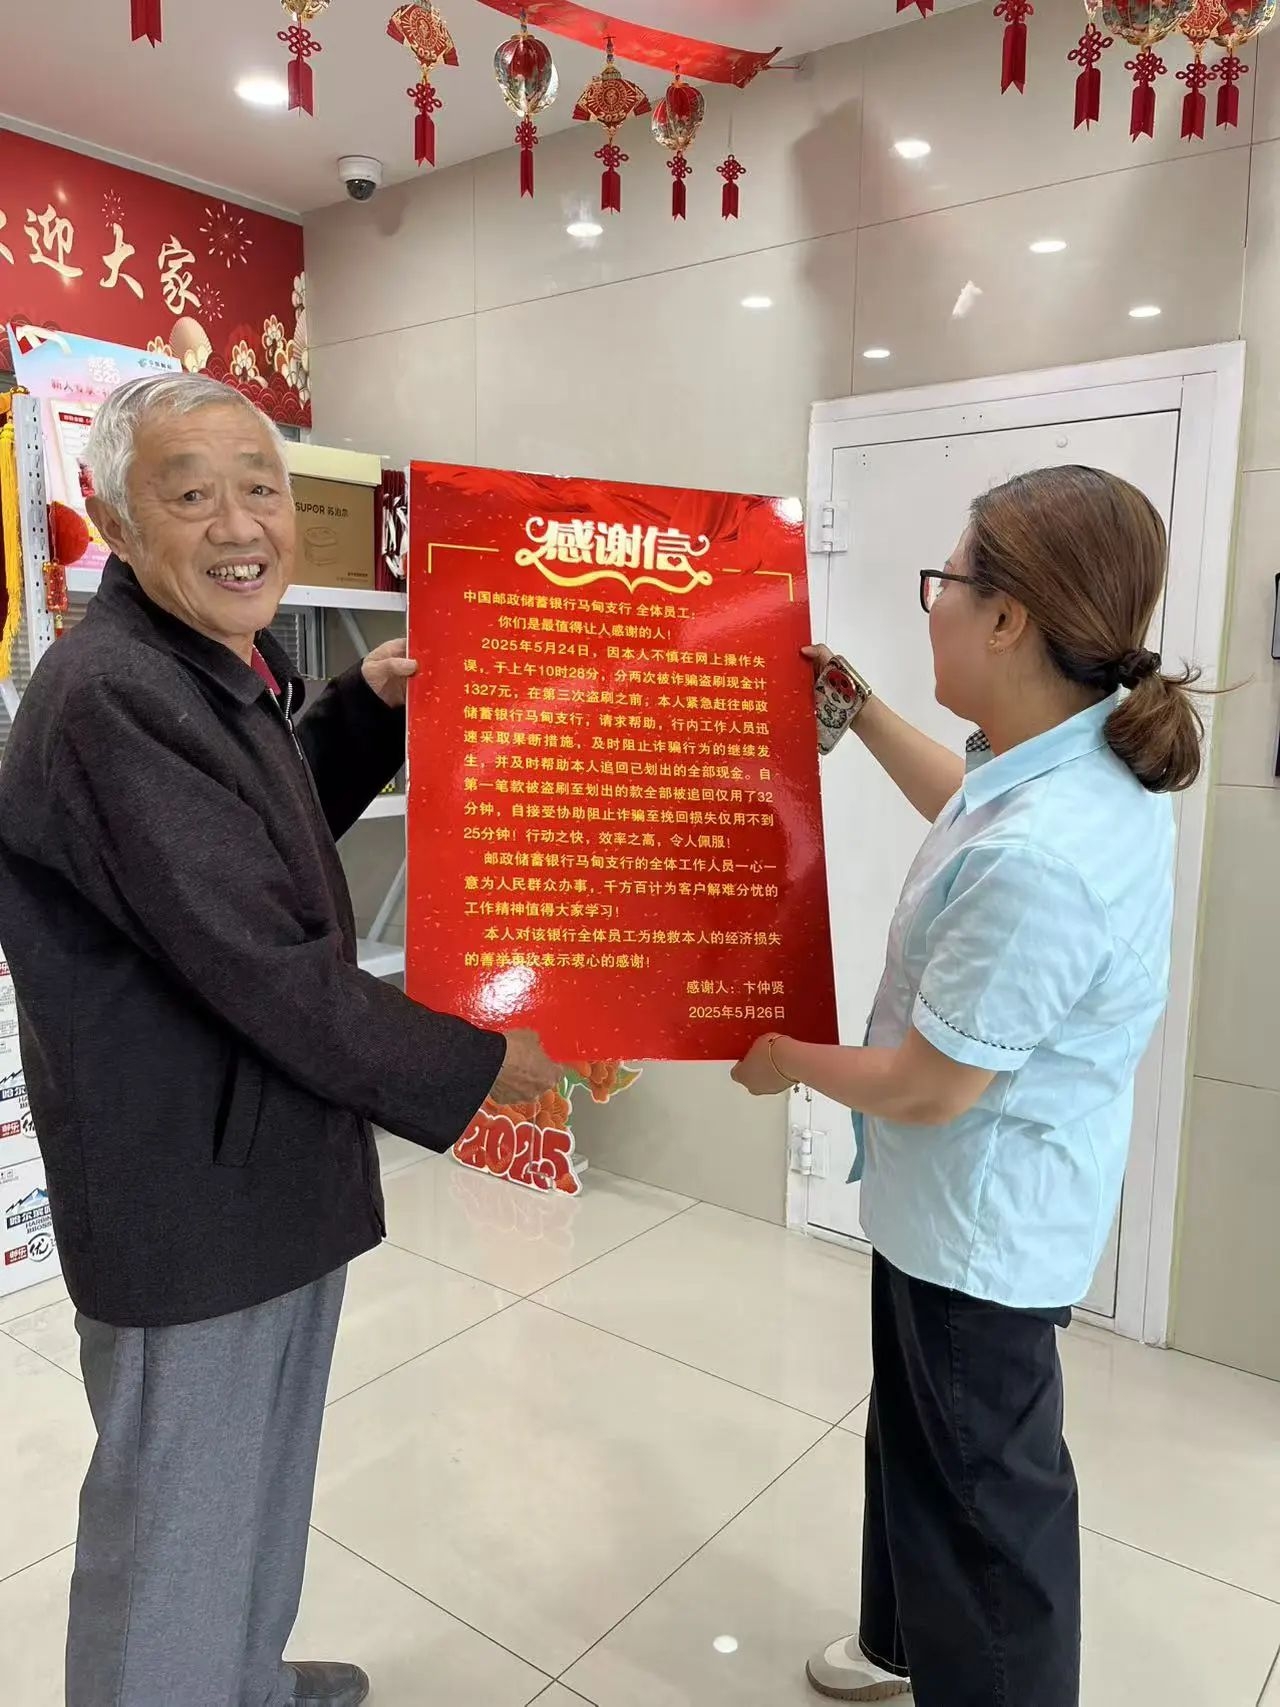 迎大家
SUPOR 苏泊尔
感谢信
中国邮政储蓄银行马甸支行 全体员工:
你们是最值得让人感谢的人!
2025年5月24日, 因本人不慎在网上操作失
误, 于上午10时28分, 分两次被诈骗盗刷现金计
1327元, 在第三次盗刷之前; 本人紧急赶往邮政
储蓄银行马甸支行; 请求帮助, 行内工作人员迅
速采取果断措施, 及时阻止诈骗行为的继续发
生, 并及时帮助本人追回已划出的全部现金。自
第一笔款被盗刷至划出的款全部被追回仅用了32
分钟, 自接受协助阻止诈骗至挽回损失仅用不到
25分钟! 行动之快, 效率之高, 令人佩服!
邮政储蓄银行马甸支行的全体工作人员一心一
意为人民群众办事, 千方百计为客户解难分忧的
工作精神值得大家学习!
本人对该银行全体员工为挽救本人的经济损失
的善举再次表示衷心的感谢!
感谢人: 卞仲贤
2025年5月26日
2025
2025
2025
哈尔滨
HARBIN
优